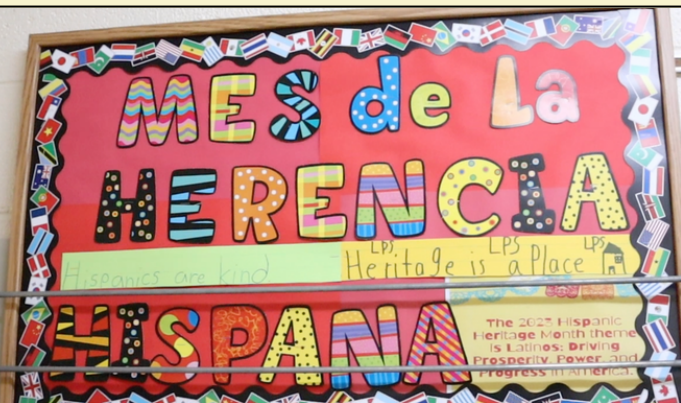 MES de La
HERENCIA
Hispanics are kind.
LPS LPS LPS
Heritage is a Place
HISPANA
The 2023 Hispanic
Heritage Month theme
is Latinos: Driving
Prosperity, Power, and
Progress in America.